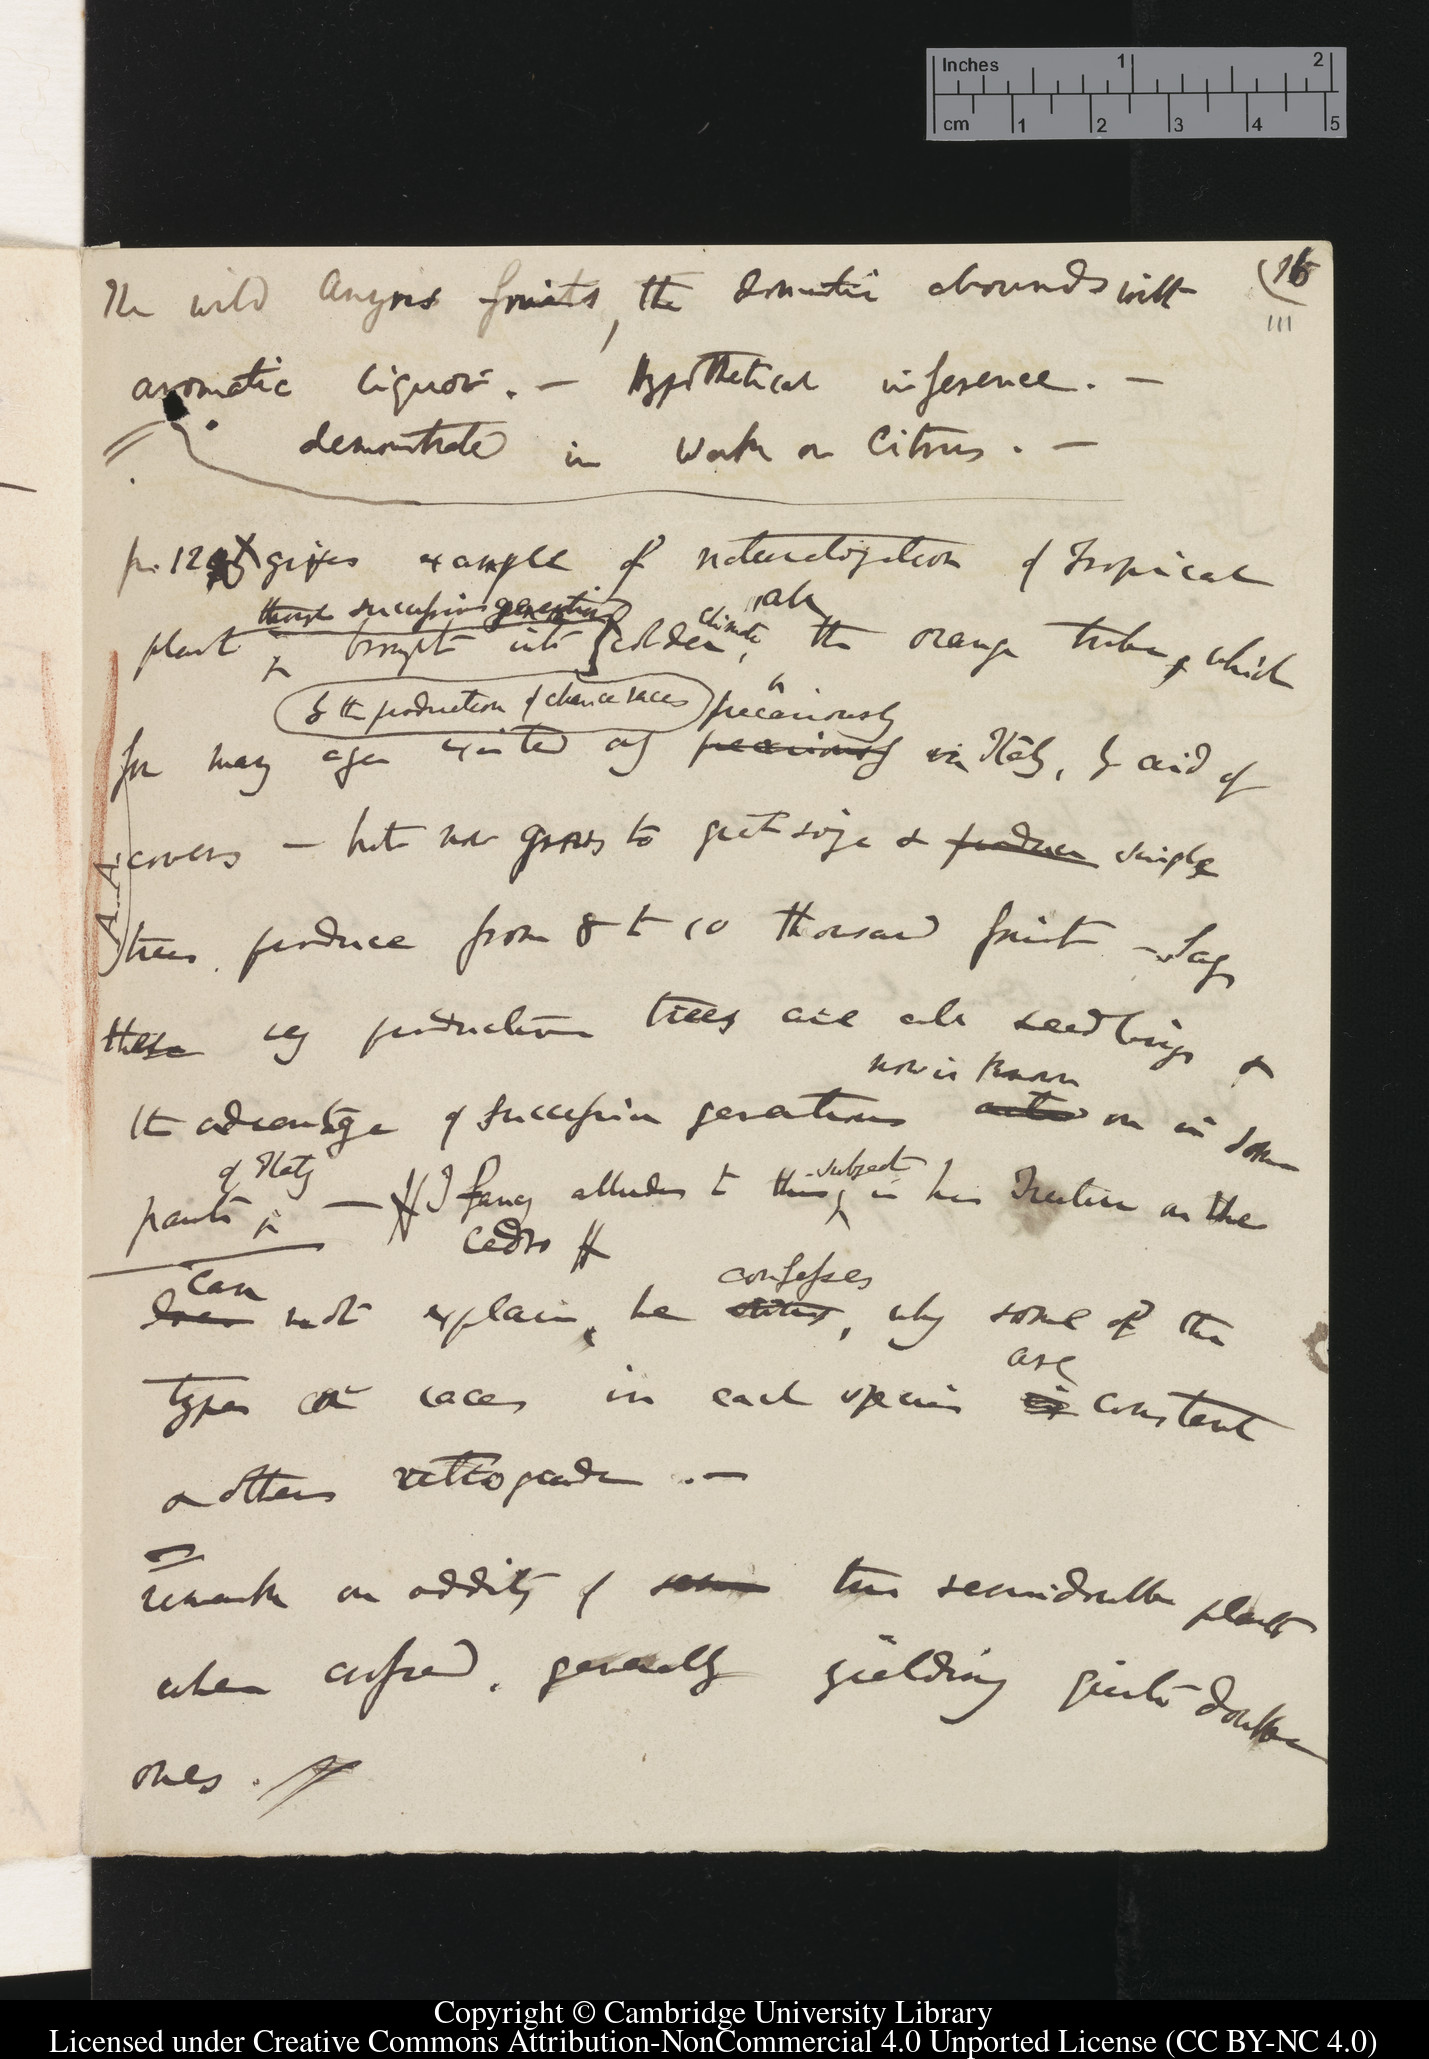 Inches 1 2
cm 1 2 3 4 5
16
111
The wild fruits, the domestic abounds with
aromatic liquor. — Hypothetical inference. —
demonstrated in work on Citrus. —
p. 129 gives example of naturalization of Tropical
though successive generations climate
plant brought into colder, the orange tribe, which
by the production of chance races precariously
for many ages existed only precariously in Italy, by aid of
covers — but now grows to great size & produce single
trees produce from 8 to 10 thousand fruit — Says
these productive trees are all seedlings &
now is known
the advantage of successive generations acted on in some
of Italy subject
parts — I fancy alludes to this in his Treatise on the
cedro
can confesses
does not explain, he states, why some of the
are
types or races in each species is constant
& others retrograde. —
remarks on oddity of some two semidouble plants
when crossed, generally yielding quite double
ones.
Copyright © Cambridge University Library
Licensed under Creative Commons Attribution-NonCommercial 4.0 Unported License (CC BY-NC 4.0)